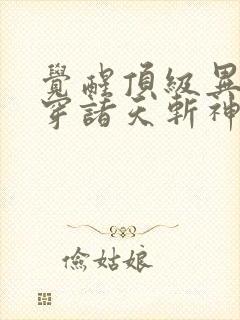 覺醒頂級異
穿諸天斬神
儉姑娘